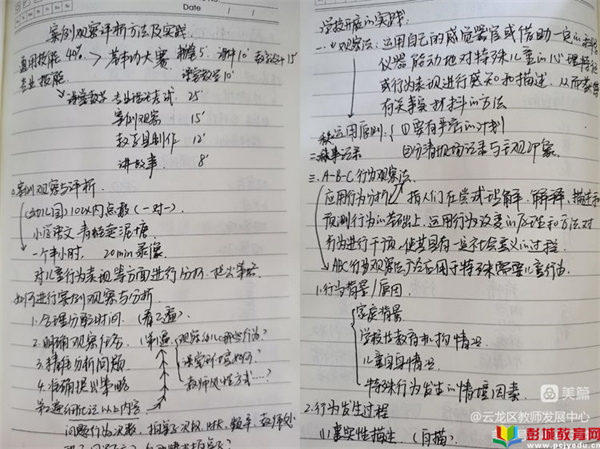 Date
案例观察评析方法及实践
通用技能 40% > 基本功大赛 粉笔5' 简笔10'
专业技能
课堂教学10'
课堂教学 专业理论考试 25'
案例观察 15'
教具制作 12'
讲故事 8'
案例观察与评析.
(幼儿园) 10以内点数 (一对一)
小学语文
一个半小时, 20min录像
对儿童行为表现等方面进行分析, 提出策略
如何进行案例观察与分析
1.合理分配时间. (看2遍)
2.明确观察任务. (第1遍) 观察幼儿哪些行为?
课堂环境如何?
教师反馈方式…?
3.精准分析问题
4.准确提出策略
第2遍印证以上内容
问题行为次数,
学校开展的实践:
一.观察法: 运用自己的感觉器官或借助一定的
仪器能动地对特殊儿童的心理特征
或行为表现进行感知和描述, 从而获得
有关事实材料的方法
运用原则: ①要有严密的计划
二.轶事记录 ②分清现场记录与主观印象
三.A-B-C行为观察法
应用行为分析: 指人们在尝试理解、解释、描述和
预测行为的基础上, 运用行为改变的原理和方法对
行为进行干预, 使其具有一定社会意义的过程
ABC行为观察法适合用于特殊需要儿童行为.
1.行为背景/原因
家庭背景
学校或教育机构情况
儿童自身情况
特殊行为发生的情境因素
2.行为发生过程
(1)事实性描述. (白描)
美篇
@云龙区教师发展中心
彭城教育网
www.pcjyedu.com